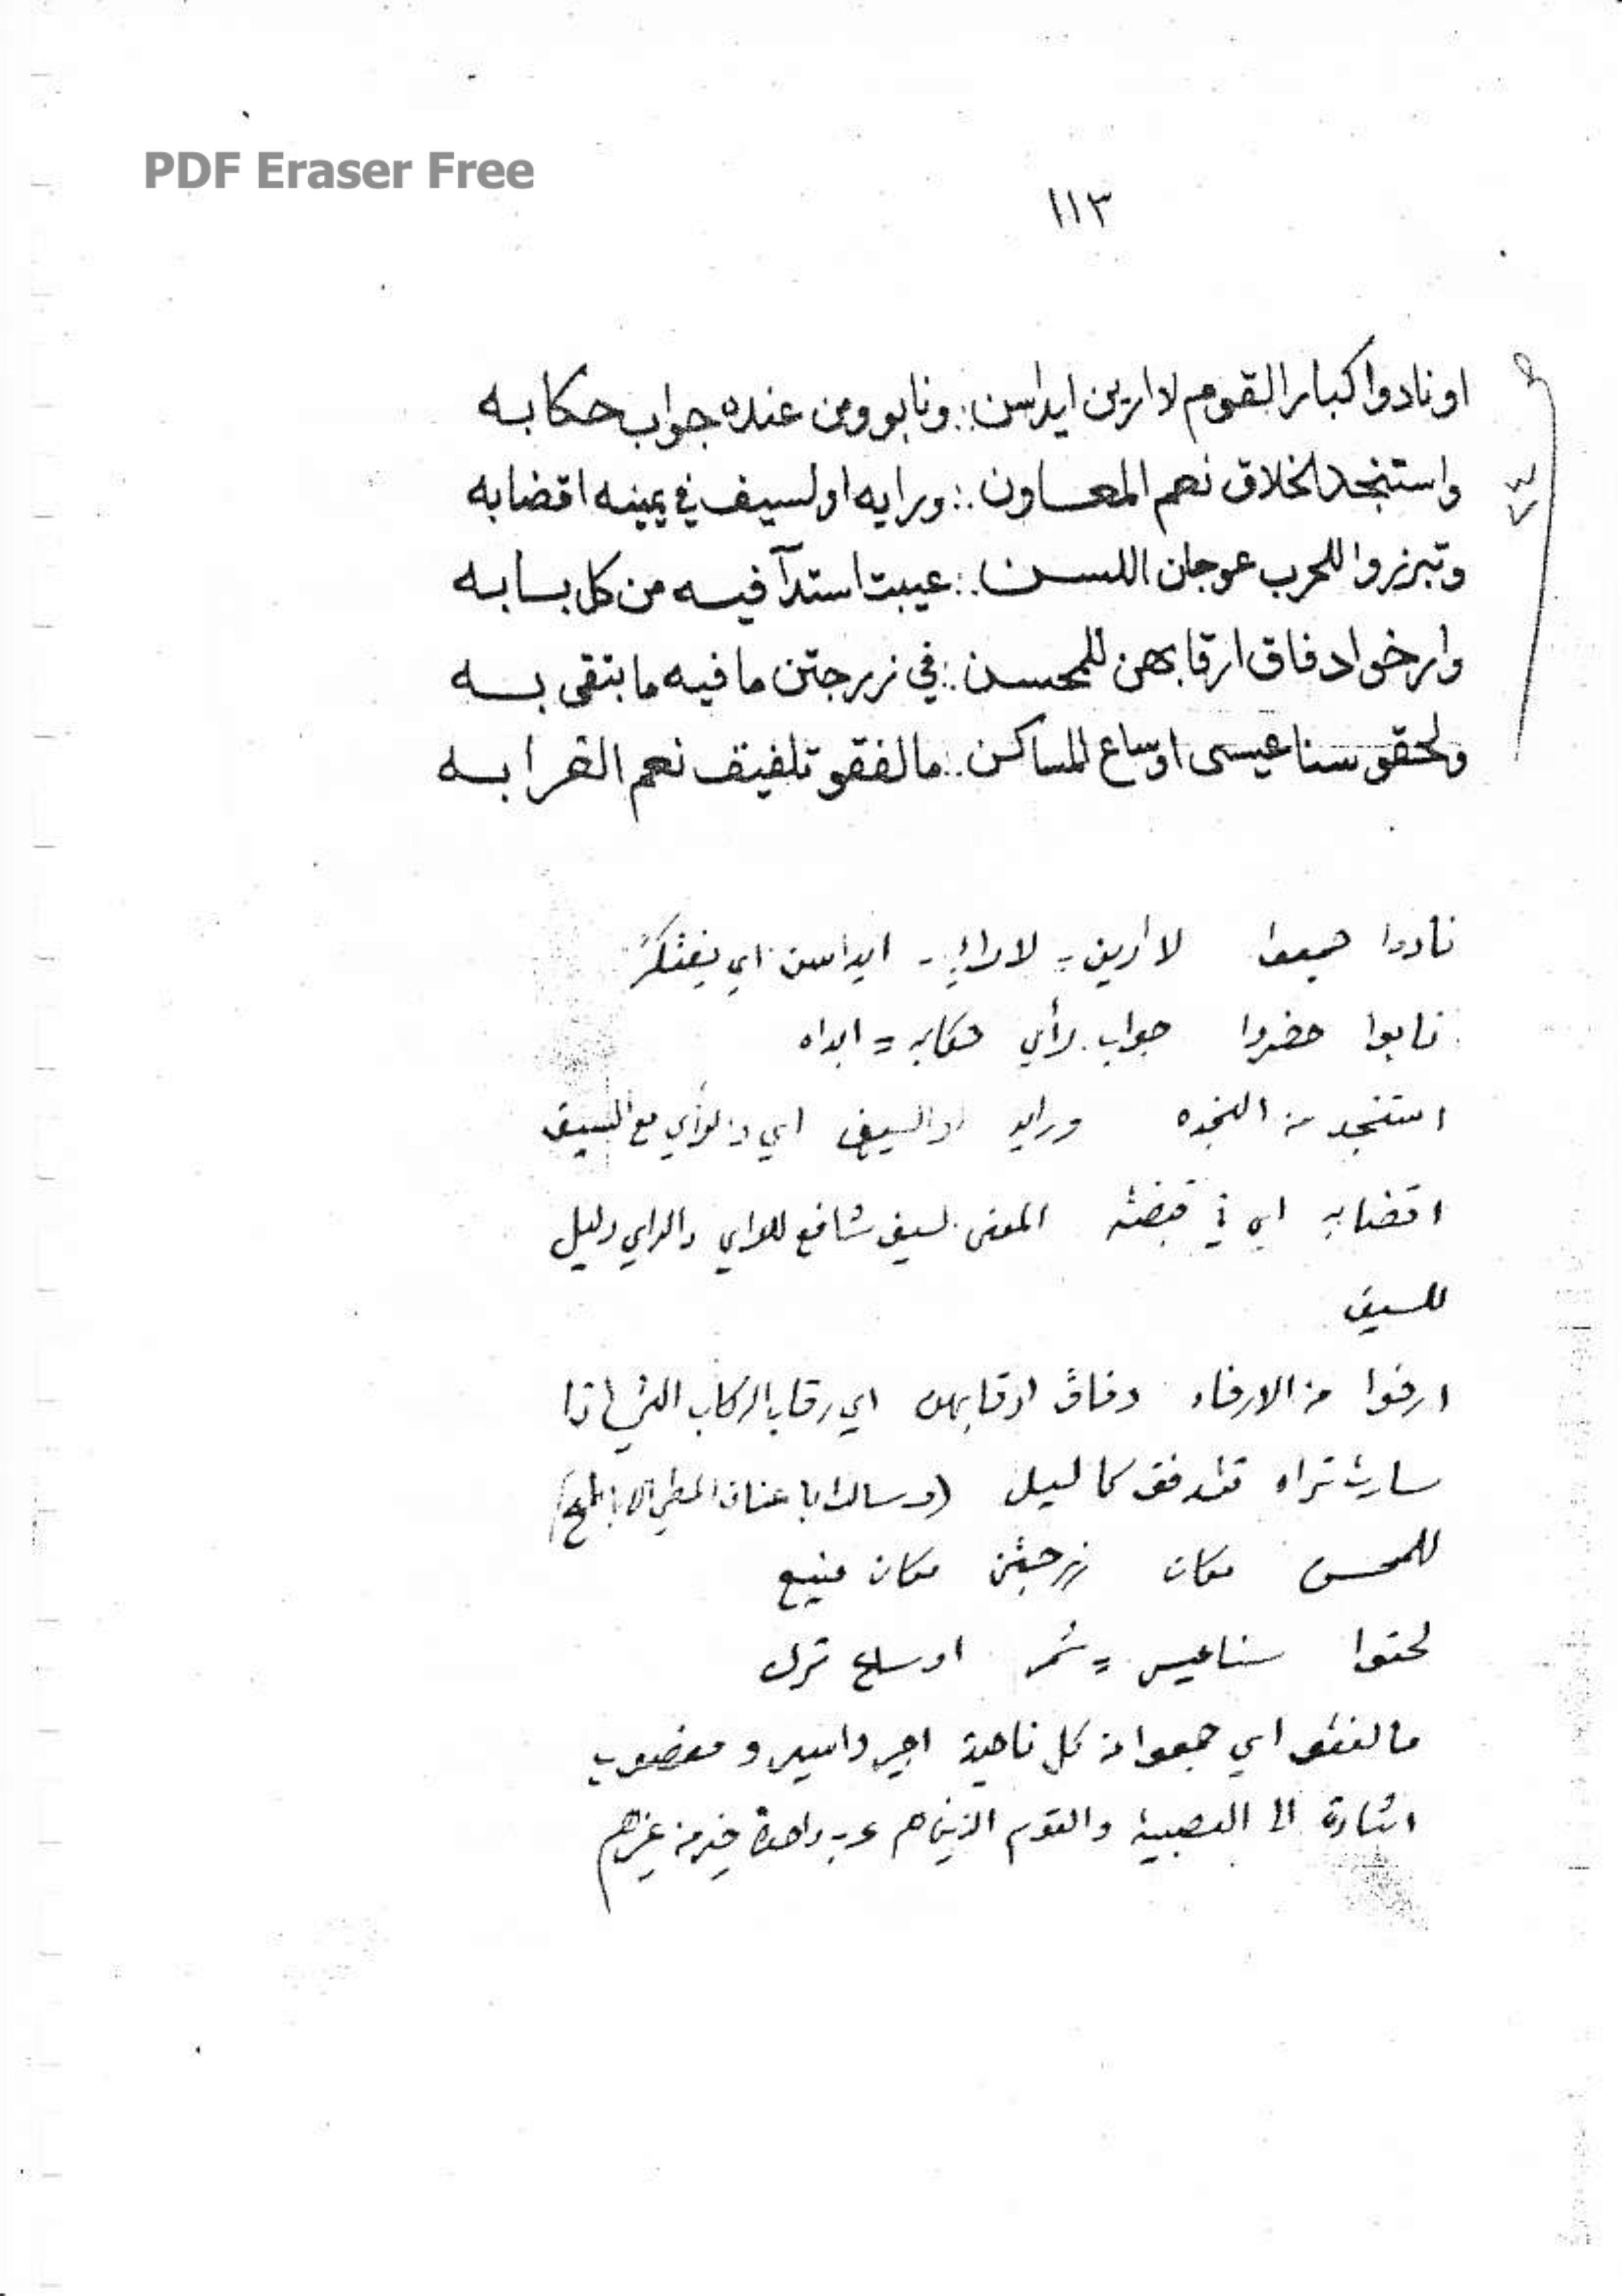 PDF Eraser Free
١١٣
اونادوا كبار القوم لا ارين ايداسن .:. ونابو ومن عنده جواب حكابه
واستنجد الخلاق نعم المعاون .:. ورايه اولسيف في يمينه اقضابه
وتبرزوا للحرب عوجان اللسن .:. عيبت استدآ فيه من كل بسابه
وارخوا دفاق ارقابهن للمحسن .:. في زرجتن ما فيه ما بتقى بسه
ولحقو سناعيسى اوساع المساكن .:. مالفقو تلفيف نعم القرابسه
نادوا جمعوا لا أرين = لا راي - ايداسن اي يفتكر
نابوا حضروا جواب رأي حكابه = ابداه
استنجد من النجده ورايه اوالسيف اي والرأي مع السيف
اقضابه اي في قبضته المعنى لسيف شافع للراي والراي دليل
للسيف
ارخوا من الارخاء دفاق ارقابهن اي رقاب الركاب التي اذا
سارت تراه تتدفق كالسيل (وسالت باعناق المطي الاباطح)
للمحسن مكان زرجتن مكان منيع
لحقوا سناعيس = شمر اوساع ترك
مالفقو اي جمعوا من كل ناحية اجير واسير و مغصوب
اشارة الى العصبية والقوم الذين هم عرب واحدة خير من غيرهم